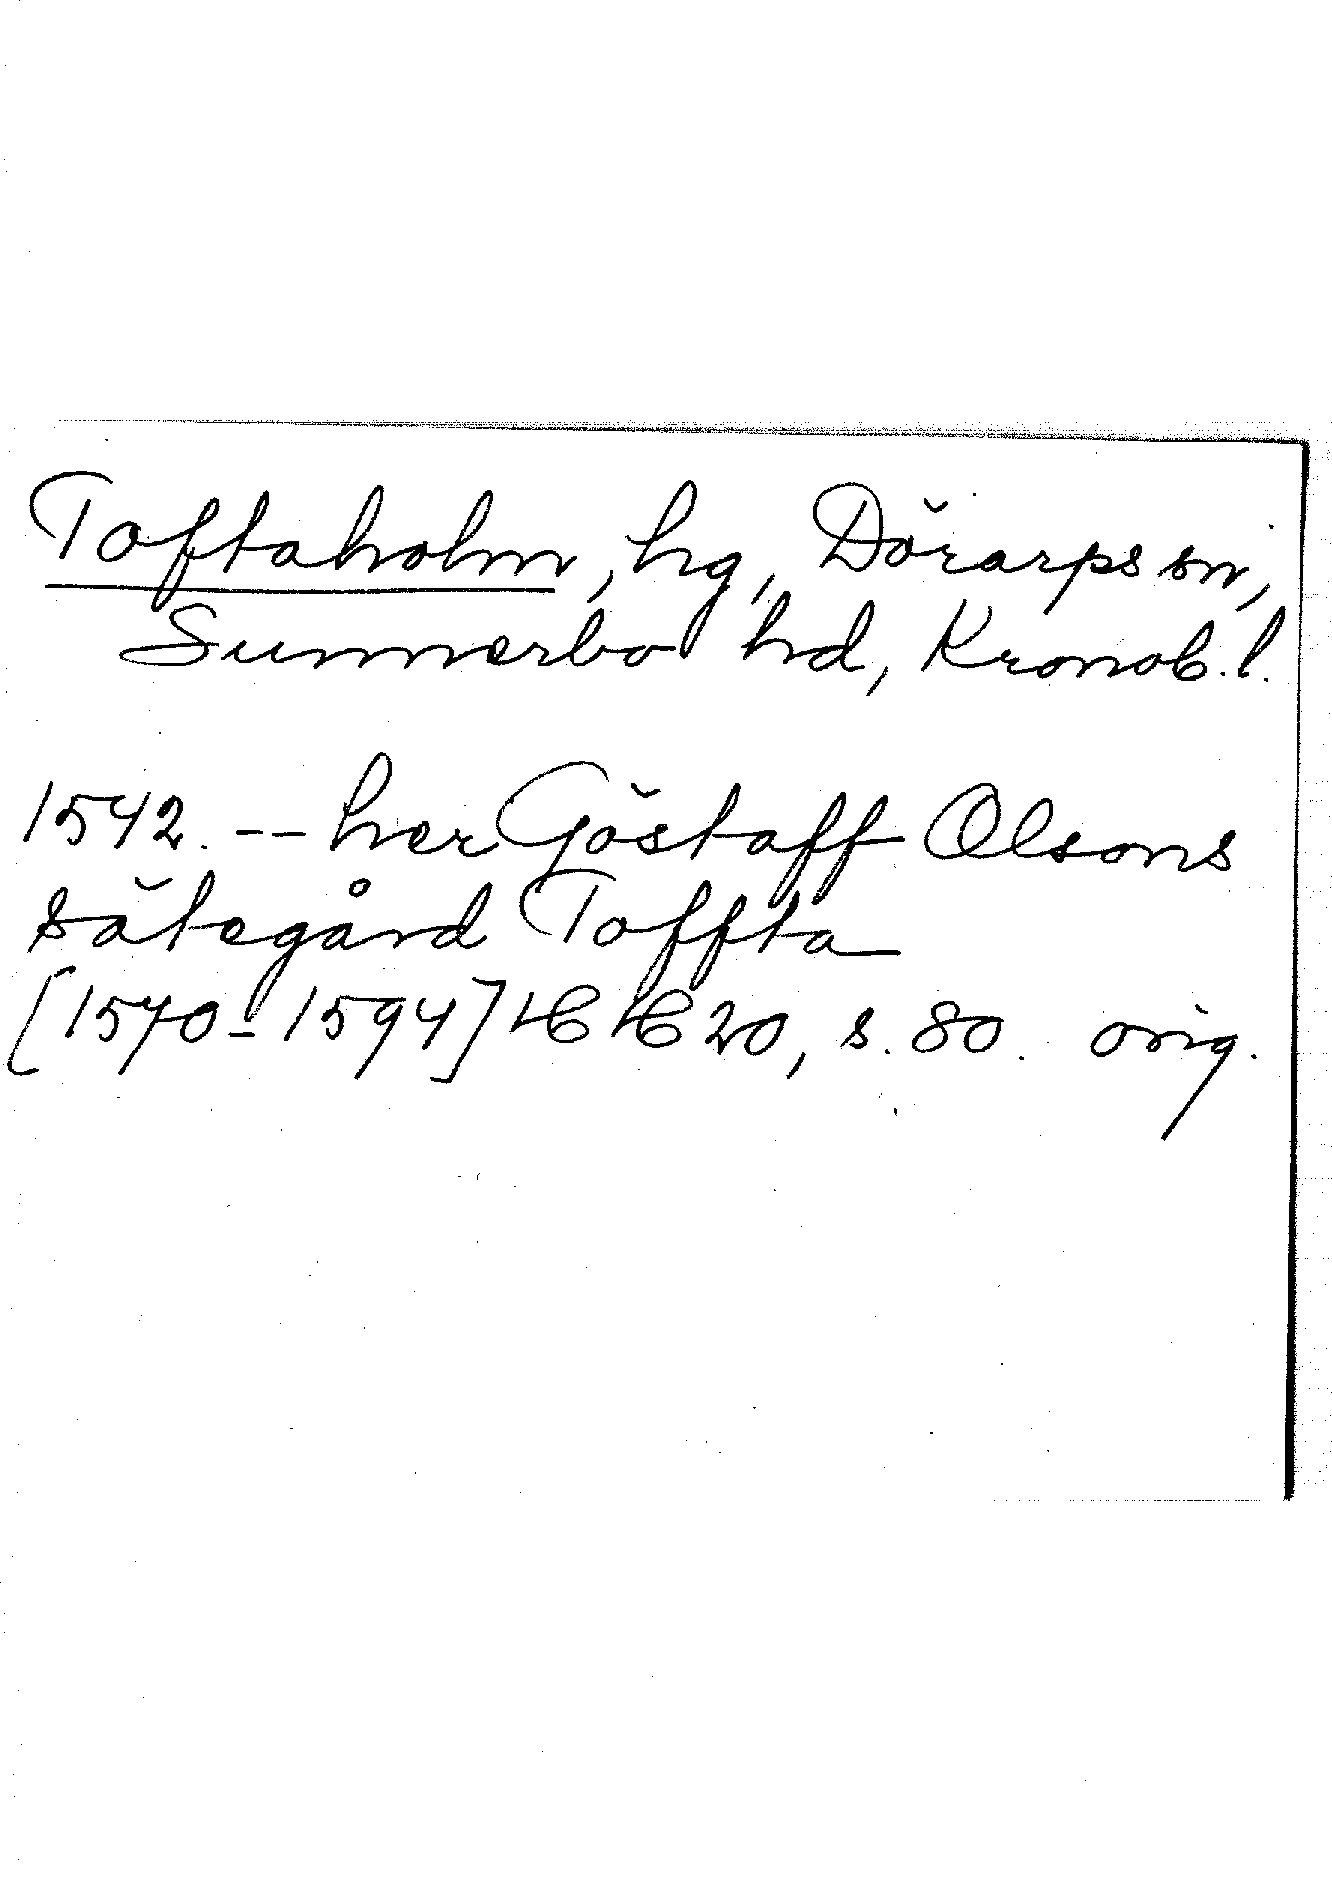 Toftaholm, hg, Dörarps sn,
Sunnerbo hd, Kronob. l.
1542. -- her Göstaff Olsons
sätegård Toffta
[1570-1594] HH 20, s. 80. orig.